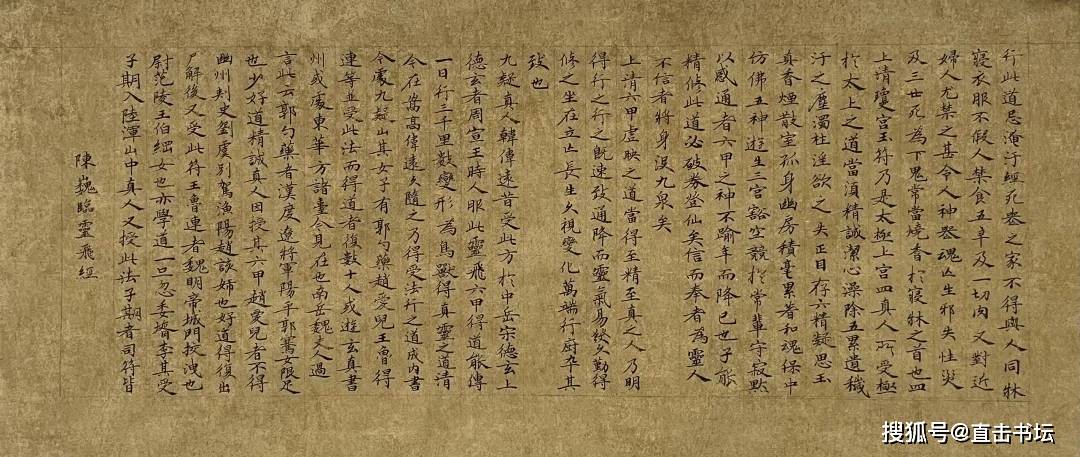 行此道忌淹汙經死喪之家不得與人同牀
寢衣服不假人禁食五辛及一切肉又對近
婦人尤禁之甚令人神喪魂亡生邪失性災
及三世死為下鬼常當燒香於寢牀之首也四
上清瓊宮玉符乃是太極上宮四真人所受極
於太上之道當須精誠潔心澡除五累遺穢
汙之塵濁杜淫欲之失正目存六精凝思玉
真香煙散室孤身幽房積毫累著和魂保中
仿佛五神遊生三宮豁空競於常輩守寂默
以感通者六甲之神不踰年而降已也子能
精修此道必破券登仙矣信而奉者為靈人
不信者將身沒九泉矣
上清六甲虛映之道當得至精至真之人乃明
得行之行之既速致通降而靈氣易發久勤得
修之坐在立亡長生久視變化萬端行廚卒其
致也
九疑真人韓偉遠昔受此方於中岳宋德玄上
德玄者周宣王時人服此靈飛六甲得道能傳
一日行三千里數變形為鳥獸得真靈之道清
今在嵩高偉遠久隨之乃得受法行之道成內書
今處九疑山其女子有郭勺藥趙愛兒王魯得
連等並受此法而得道者復數十人或遊玄真書
州或處東華方諸臺今見在也南岳魏夫人過
言此云郭勺藥者漢度遼將軍陽平郭騫女限足
也少好道精誠真人因授其六甲趙愛兒者不得
幽州刺史劉虞別駕漁陽趙該姊也好道得復出
尸解後又受此符王魯連者魏明帝城門校洩也
尉范陵王伯綱女也亦學道一旦忽委壻李其受
子期入陸渾山中真人又授此法子期者司符皆
陳巍臨靈飛經
搜狐号@直击书坛